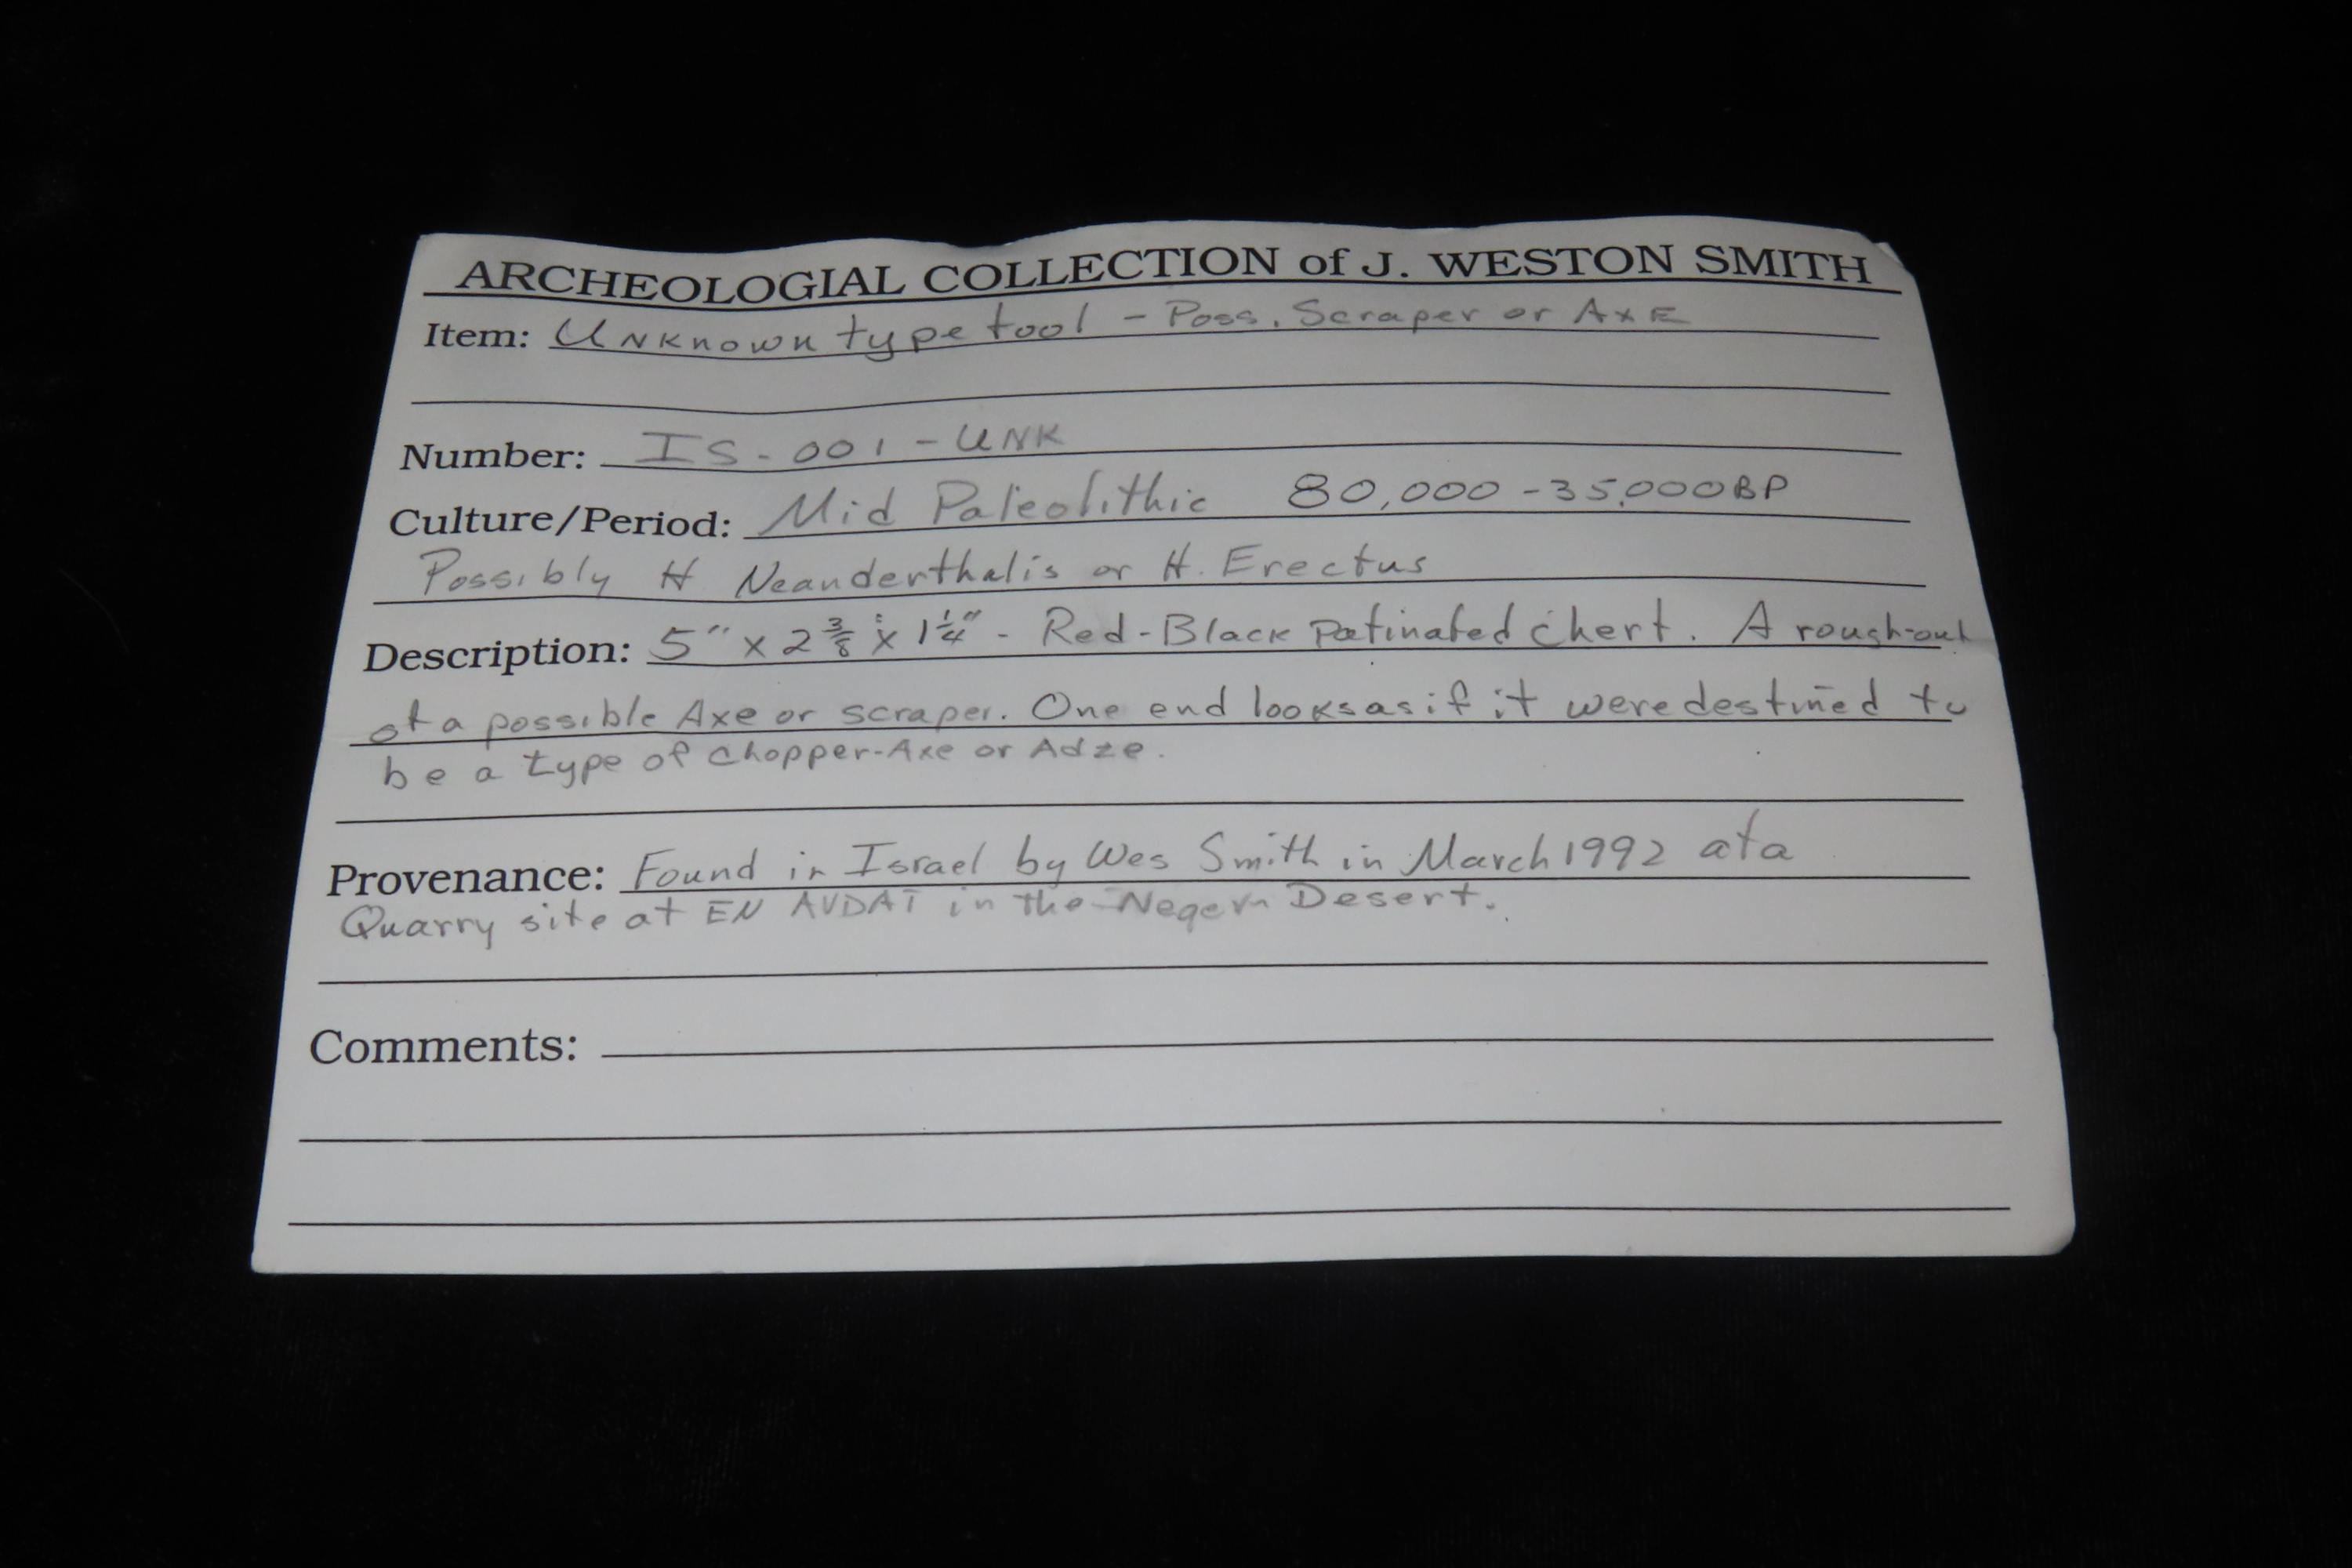 ARCHEOLOGIAL COLLECTION of J. WESTON SMITH
Item: Unknown type tool - Poss. Scraper or Axe
Number: IS-001-UNK
Culture/Period: Mid Paleolithic 80,000 - 35,000 BP
Possibly H Neanderthalis or H. Erectus
Description: 5" x 2 3/8 x 1 1/4" - Red-Black Patinated chert. A rough-out
of a possible Axe or scraper. One end looks as if it were destined to
be a type of chopper-Axe or Adze.
Provenance: Found in Israel by Wes Smith in March 1992 at a
Quarry site at EN AVDAT in the Negev Desert.
Comments: